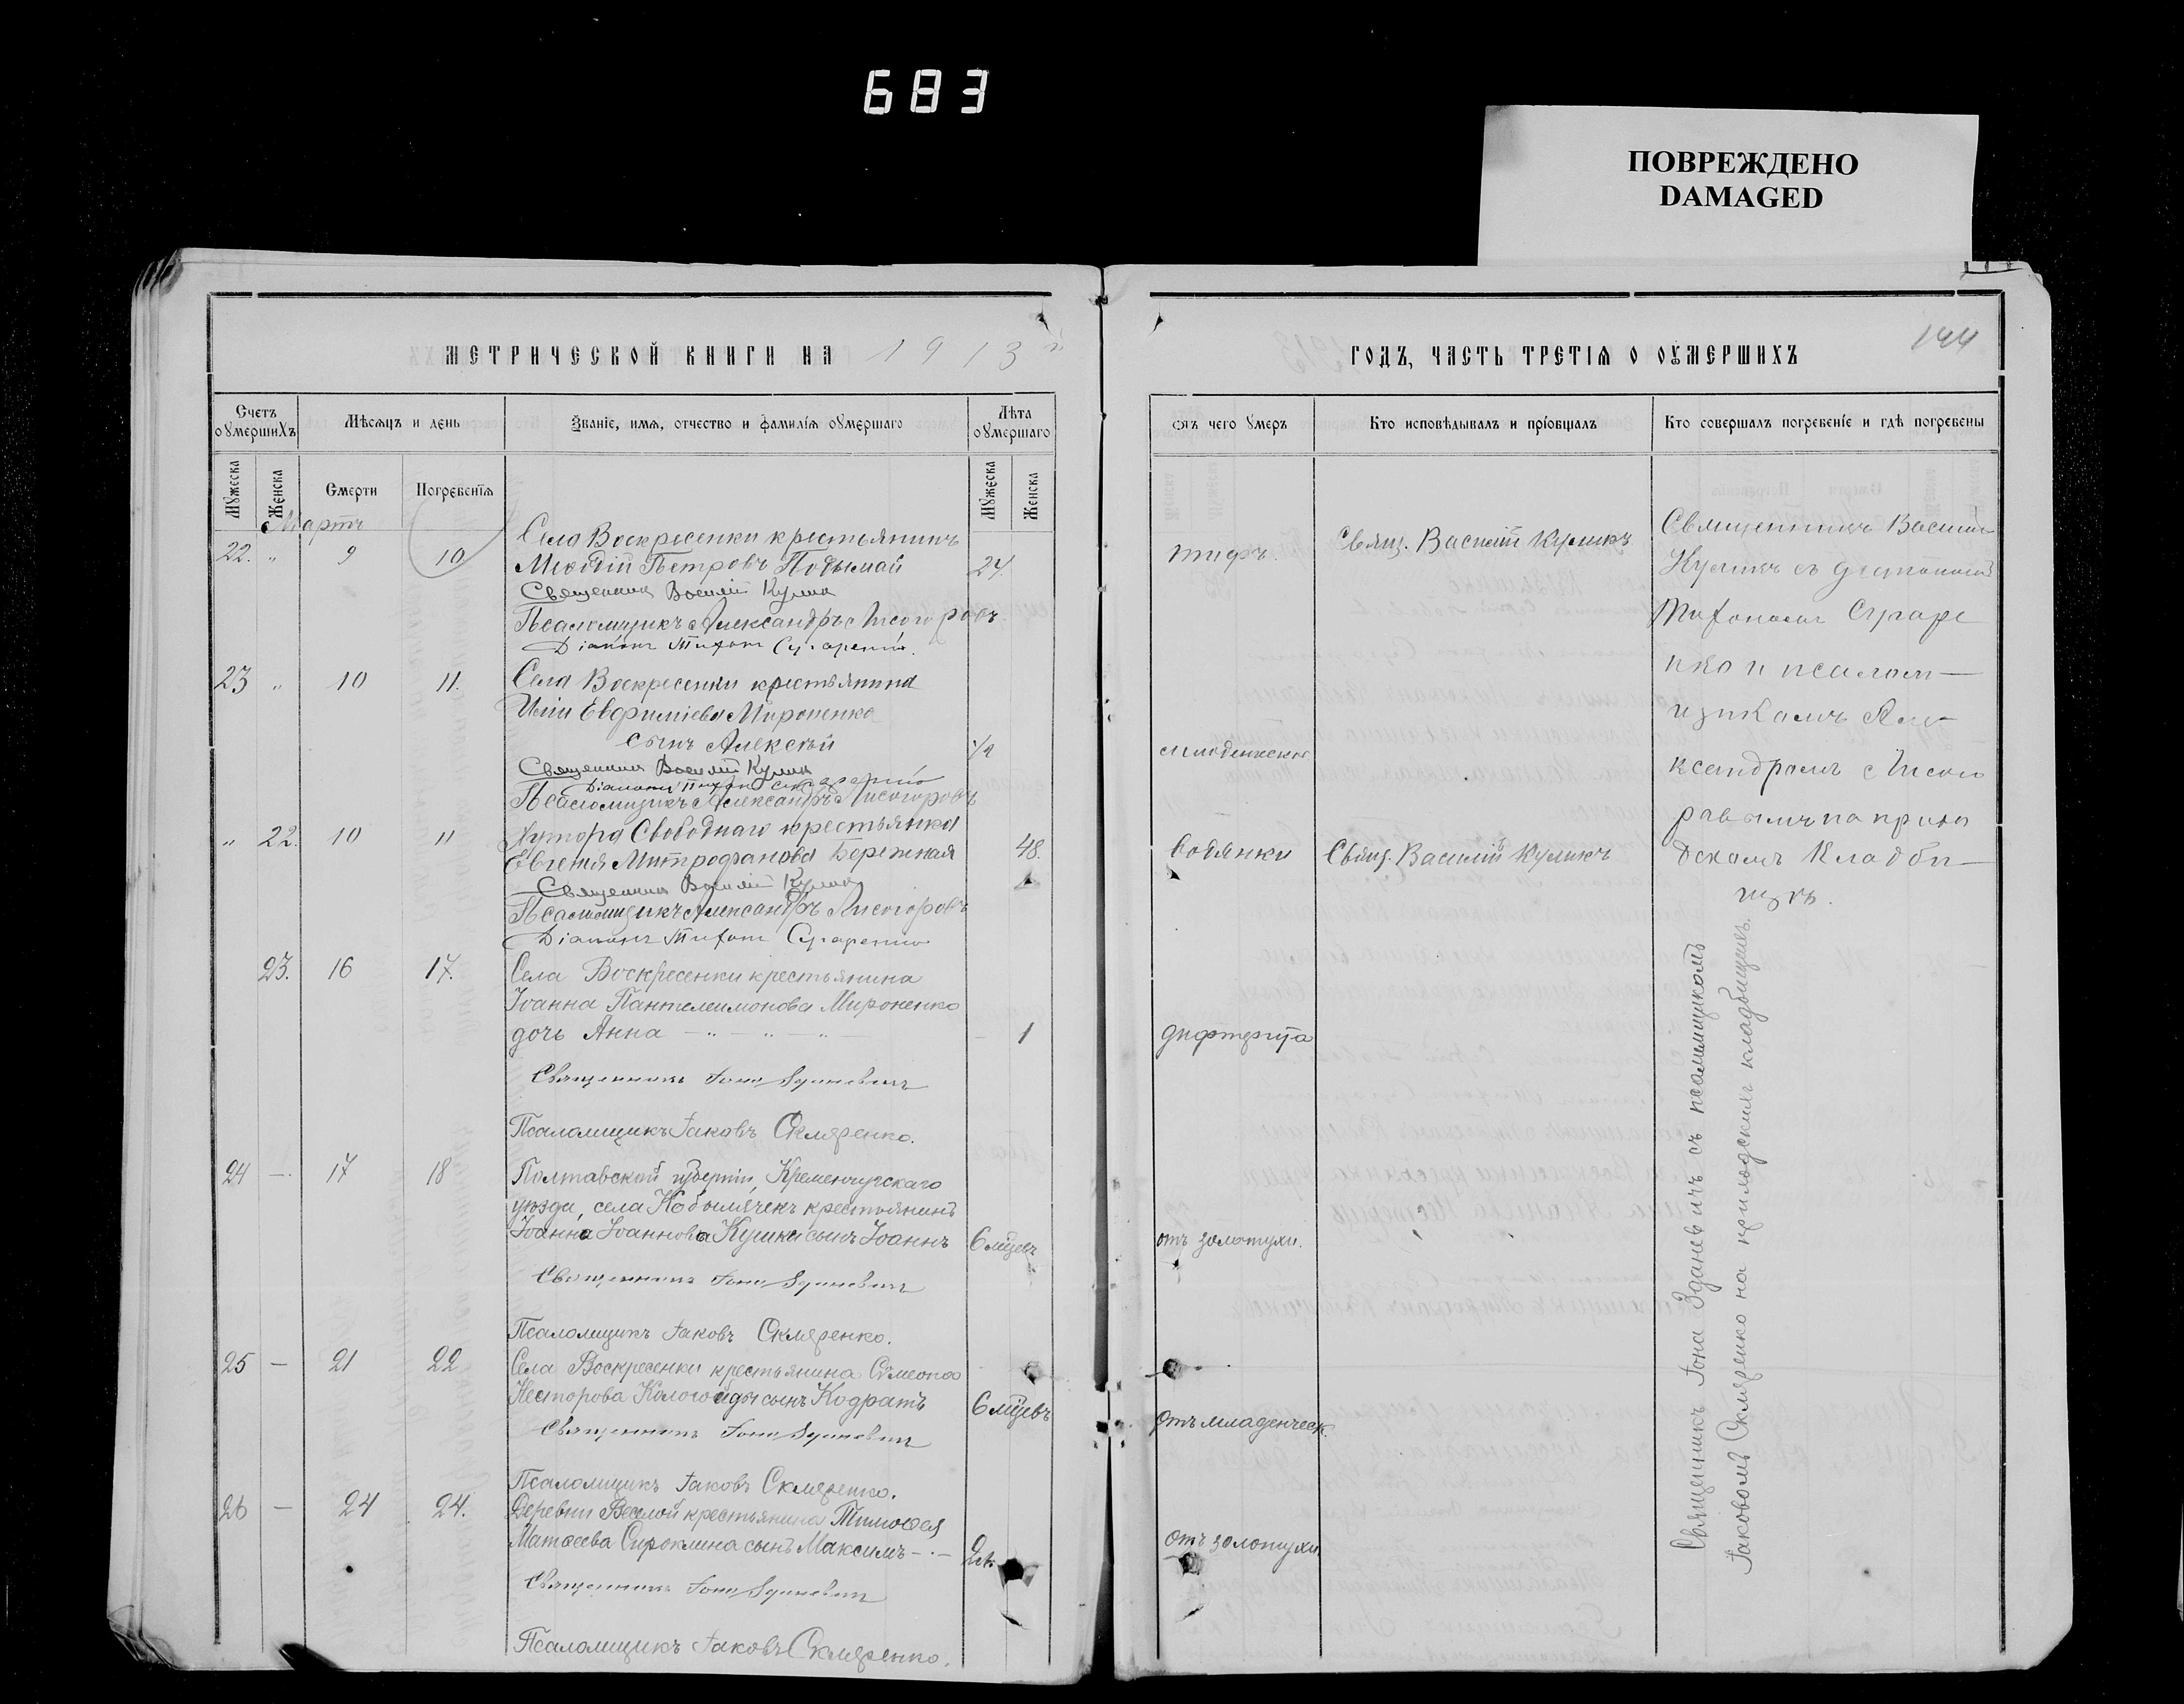 683
ПОВРЕЖДЕНО
DAMAGED
144
МЕТРИЧЕСКОЙ КНИГИ НА 1913
ГОДЪ, ЧАСТЬ ТРЕТІЯ О ОУМЕРШИХЪ
Счетъ оумершихъ
Мѣсяцъ и день
Званіе, имя, отчество и фамилія оумершаго
Лѣта оумершаго
Отъ чего умеръ
Кто исповѣдывалъ и пріобщалъ
Кто совершалъ погребеніе и гдѣ погребены
Мужеска
Женска
Смерти
Погребенія
Мужеска
Женска
Мартъ
22. " 9 10
Села Воскресенки крестьянинъ
Меѳодій Петровъ Подымай 24.
тифъ.
Свящ. Василій Куликъ
Священникъ Василій Кулик
Псаломщикъ Александръ Лисогоровъ
Діаконъ Тихонъ
23 " 10 11.
Села Воскресенки крестьянина
Иліи Евфиміева Мироненко
сынъ Алексѣй 1/2
Священникъ Василій Кулик
Діаконъ Тихонъ
Псаломщикъ Александръ Лисогоровъ
" 22. 10 11
Хутора Свободнаго крестьянка
Евгенія Митрофанова Бережная 48.
водянки
Свящ. Василій Куликъ
Священникъ Василій Кулик
Псаломщикъ Александръ Лисогоровъ
Діаконъ Тихонъ
Священникъ Василій
Куликъ съ діакономъ
Тихономъ
нко и псалом-
щикомъ Але-
ксандромъ Лисого
ровымъ на прихо
дскомъ кладби-
щѣ.
23. 16 17.
Села Воскресенки крестьянина
Іоанна Пантелеимонова Мироненко
дочь Анна - " - " - " 1
дифтерита
Священникъ Іона Зданевич
Псаломщикъ Іаковъ Скляренко.
24 - 17 18
Полтавской губерніи, Кременчугскаго
уѣзда, села Кобылячекъ крестьянинъ
Іоанна Іоаннова Кушки сынъ Іоаннъ 6 мѣцевъ
отъ золотухи.
Священникъ Іона Зданевич
Псаломщикъ Іаковъ Скляренко.
25 - 21 22
Села Воскресенки крестьянина Сѵмеона
Несторова Кологойды сынъ Кодратъ 6 мѣцевъ
отъ младенческ.
Священникъ Іона Зданевич
Псаломщикъ Іаковъ Скляренко.
26 - 24 24.
Деревни Веселой крестьянина Тимоѳея
Матѳеева Сироклина сынъ Максимъ - . - 2
отъ золотухи
Священникъ Іона Зданевич
Псаломщикъ Іаковъ Скляренко.
Священникъ Іона Зданевичъ съ псаломщикомъ
Іаковомъ Скляренко на приходскомъ кладбищѣ.